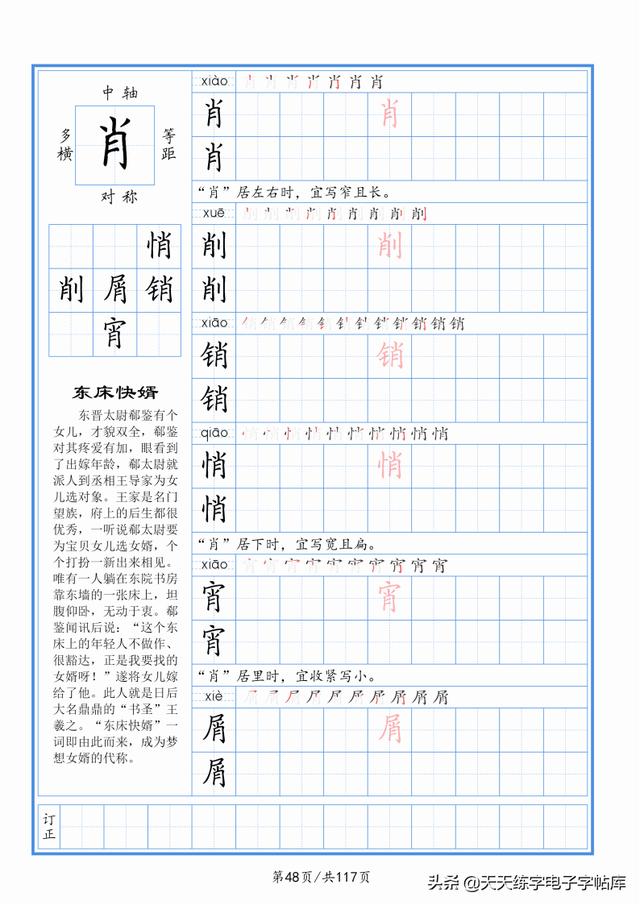 中轴
多横
肖
等距
对称
悄
削屑销
宵
东床快婿
东晋太尉郗鉴有个
女儿，才貌双全，郗鉴
对其疼爱有加，眼看到
了出嫁年龄，郗太尉就
派人到丞相王导家为女
儿选对象。王家是名门
望族，府上的后生都很
优秀，一听说郗太尉要
为宝贝女儿选女婿，个
个打扮一新出来相见。
唯有一人躺在东院书房
靠东墙的一张床上，坦
腹仰卧，无动于衷。郗
鉴闻讯后说：“这个东
床上的年轻人不做作、
很豁达，正是我要找的
女婿呀！”遂将女儿嫁
给了他。此人就是日后
大名鼎鼎的“书圣”王
羲之。“东床快婿”一
词即由此而来，成为梦
想女婿的代称。
xiào 肖肖
肖 肖
肖
“肖”居左右时，宜写窄且长。
xuē 肖肖削削
削 削
削
xiāo 销销
销 销
销
qiāo 悄悄
悄 悄
悄
“肖”居下时，宜写宽且扁。
xiāo 宵宵
宵 宵
宵
“肖”居里时，宜收紧写小。
xiè 屑屑
屑 屑
屑
订正
第48页/共117页
头条 @天天练字电子字帖库